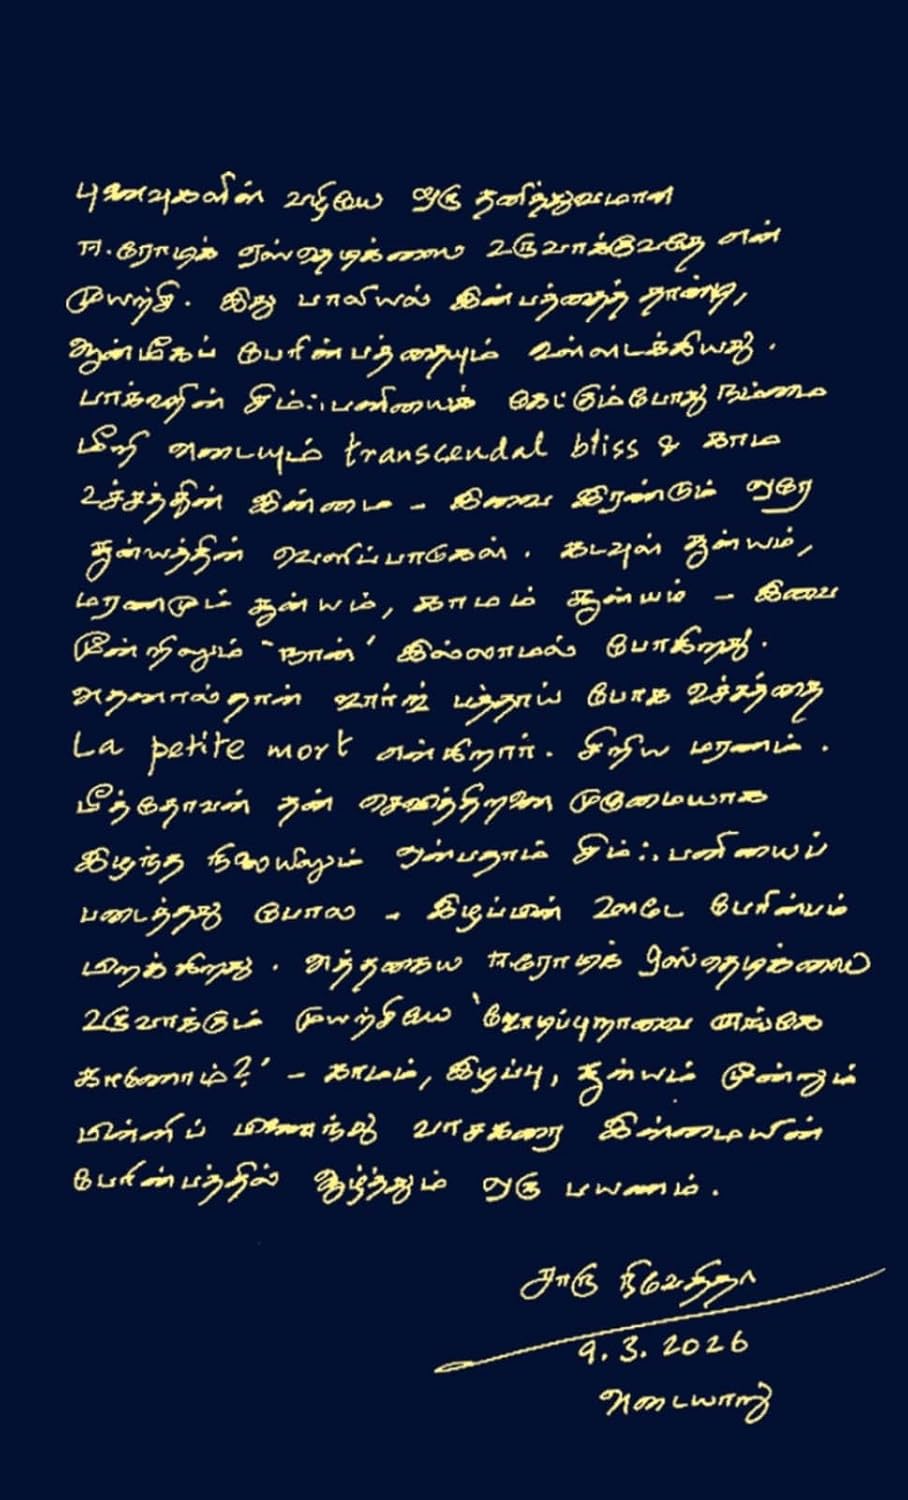 புனைவுகளின் வழியே ஒரு தனித்துவமான
ஈ.ரோடிக் ஏஸ்தெடிக்ஸை உருவாக்குவதே என்
முயற்சி. இது பாலியல் இன்பத்தைத் தாண்டி,
ஆன்மீகப் பேரின்பத்தையும் உள்ளடக்கியது.
பாக்ஹின் சிம்ஃபனியைக் கேட்கும்போது நம்மை
மீறி அடையும் transcendal bliss & காம
உச்சத்தின் இன்மை - இவை இரண்டும் ஒரே
சூன்யத்தின் வெளிப்பாடுகள். கடவுள் சூன்யம்,
மரணமும் சூன்யம், காமம் சூன்யம் - இவை
மூன்றிலும் 'நான்' இல்லாமல் போகிறது.
அதனால்தான் ஜார்ஜ் பத்தாய் போக உச்சத்தை
La petite mort என்கிறார். சிறிய மரணம்.
பீத்தோவன் தன் செவித்திறனை முழுமையாக
இழந்த நிலையிலும் ஒன்பதாம் சிம்ஃபனியைப்
படைத்தது போல - இழப்பின் ஊடே பேரின்பம்
பிறக்கிறது. அத்தகைய ஈ.ரோடிக் ஏஸ்தெடிக்ஸை
உருவாக்கும் முயற்சியே 'ஜோடிப்புறாவை எங்கே
காணோம்?' - காமம், இழப்பு, சூன்யம் மூன்றும்
பின்னிப் பிணைந்து வாசகரை இன்மையின்
பேரின்பத்தில் ஆழ்த்தும் ஒரு பயணம்.
சாரு நிவேதிதா
9.3.2026
அடையாறு